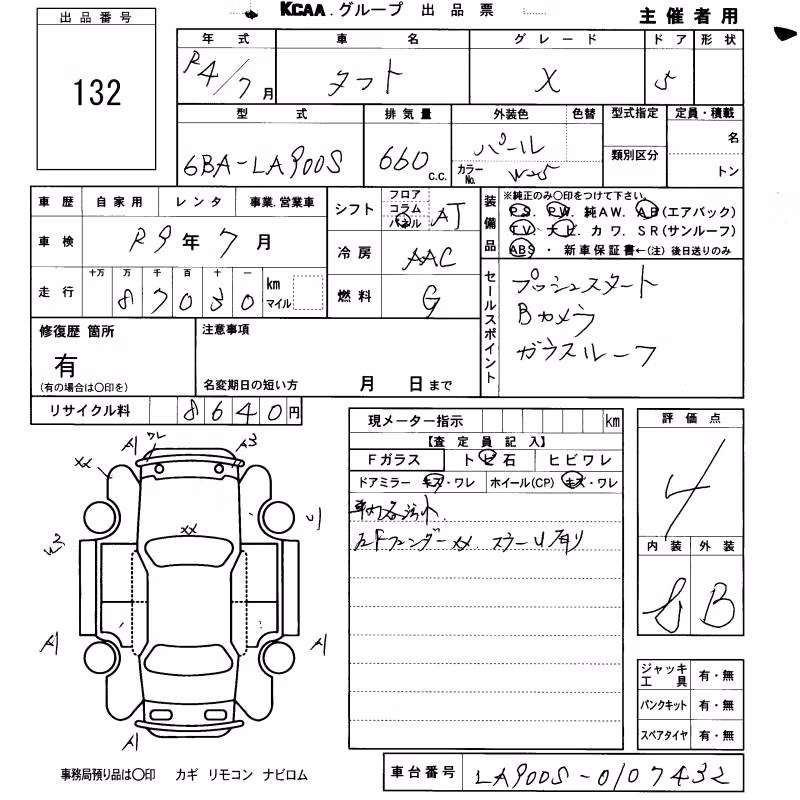 KCAA.グループ 出品票
主催者用
出品番号
132
年式 車名 グレード ドア 形状
R4/7月 タフト X 5
型式 排気量 外装色 色替 型式指定 定員・積載
6BA-LA900S 660 C.C. パール 名
カラーNo. W25 類別区分 トン
車歴 自家用 レンタ 事業.営業車
シフト フロア コラム パネル AT
装備品 ※純正のみ〇印をつけて下さい。
PS. PW. 純AW. AB(エアバック)
TV. ナビ. カワ. SR(サンルーフ)
ABS ・ 新車保証書←(注) 後日送りのみ
車検 R9年7月
冷房 AAC
走行 十万 万 千 百 十 一 km マイル
87030
燃料 G
セールスポイント
プッシュスタート
Bカメラ
ガラスルーフ
修復歴 箇所
有
(有の場合は〇印を)
注意事項
名変期日の短い方 月 日まで
リサイクル料 8640円
現メーター指示 km
【査定員記入】
Fガラス トビ石 ヒビワレ
ドアミラー キズ・ワレ ホイール(CP) キズ・ワレ
車内
左FフェンダーXX 有り
評価点
4
内装 外装
B
A1 ワレ A3
XX
XX
W2
A1 A1
A1
ジャッキ工具 有・無
パンクキット 有・無
スペアタイヤ 有・無
事務局預り品は〇印 カギ リモコン ナビロム
車台番号 LA900S-0107432